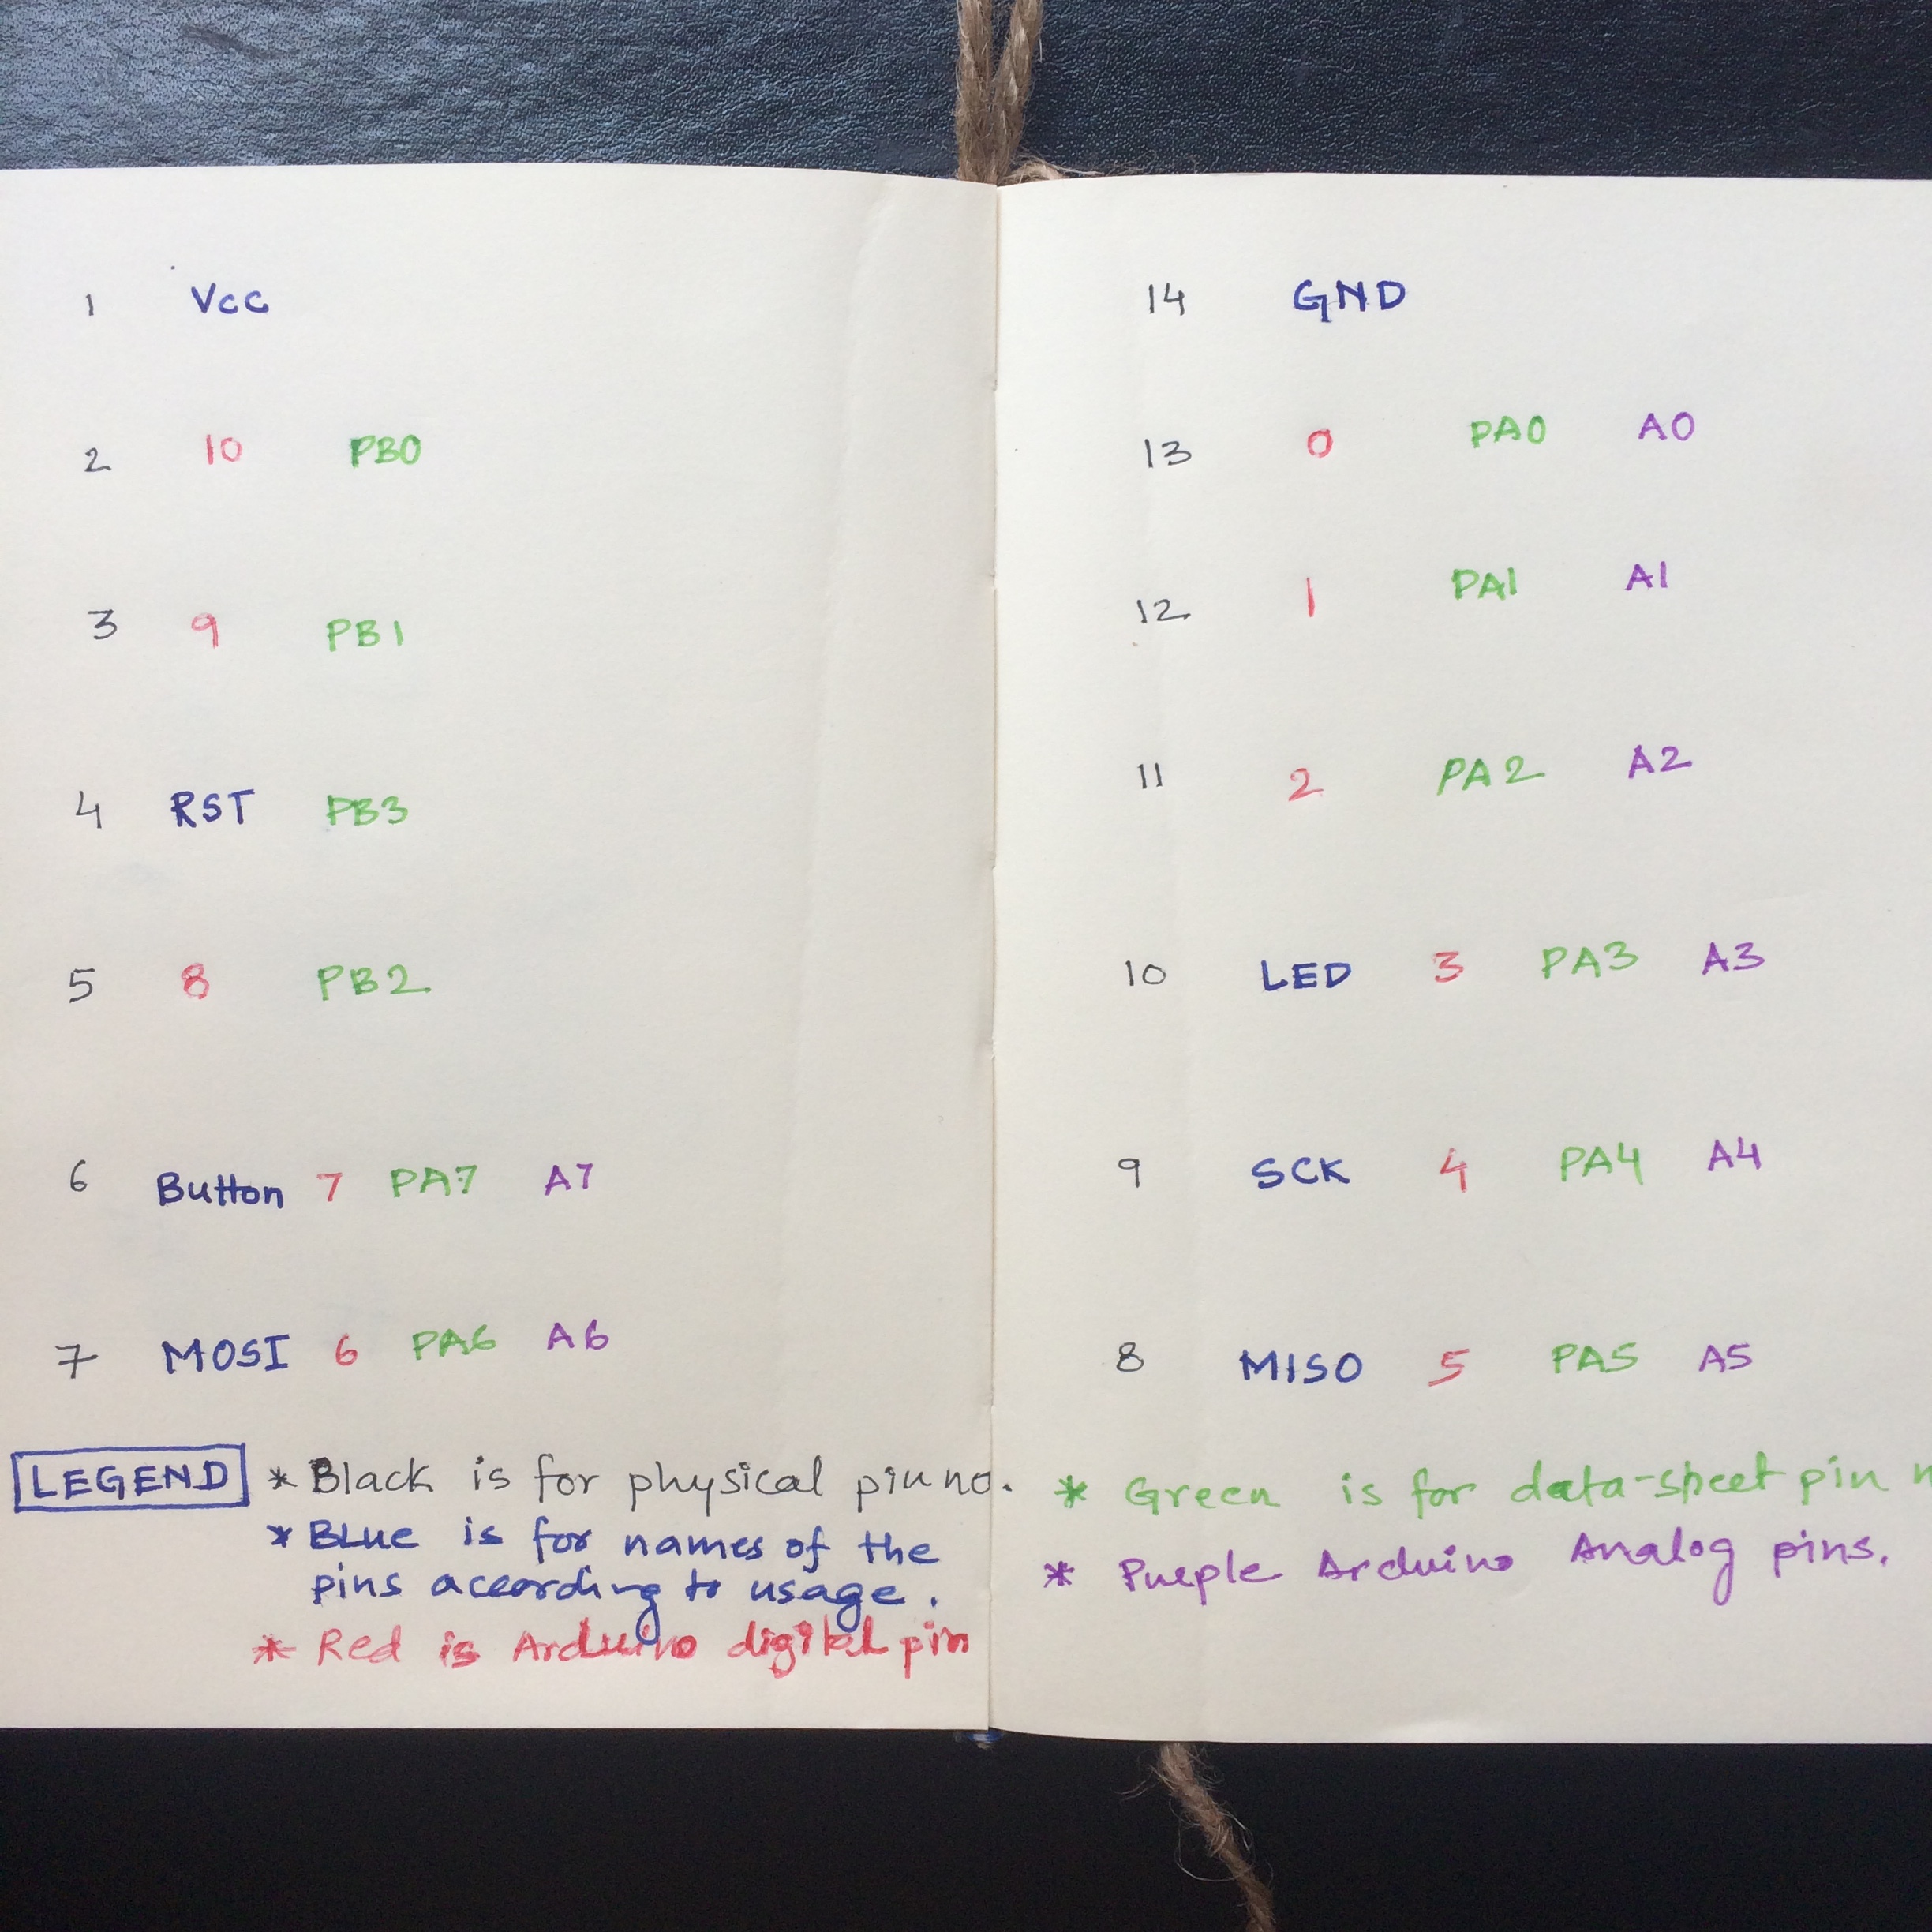 1 Vcc
2 10 PB0
3 9 PB1
4 RST PB3
5 8 PB2
6 Button 7 PA7 A7
7 MOSI 6 PA6 A6
LEGEND * Black is for physical pin no.
* BLue is for names of the
pins according to usage.
* Red is Arduino digital pin
14 GND
13 0 PA0 A0
12 1 PA1 A1
11 2 PA2 A2
10 LED 3 PA3 A3
9 SCK 4 PA4 A4
8 MISO 5 PA5 A5
* Green is for data-sheet pin
* Purple Arduino Analog pins.